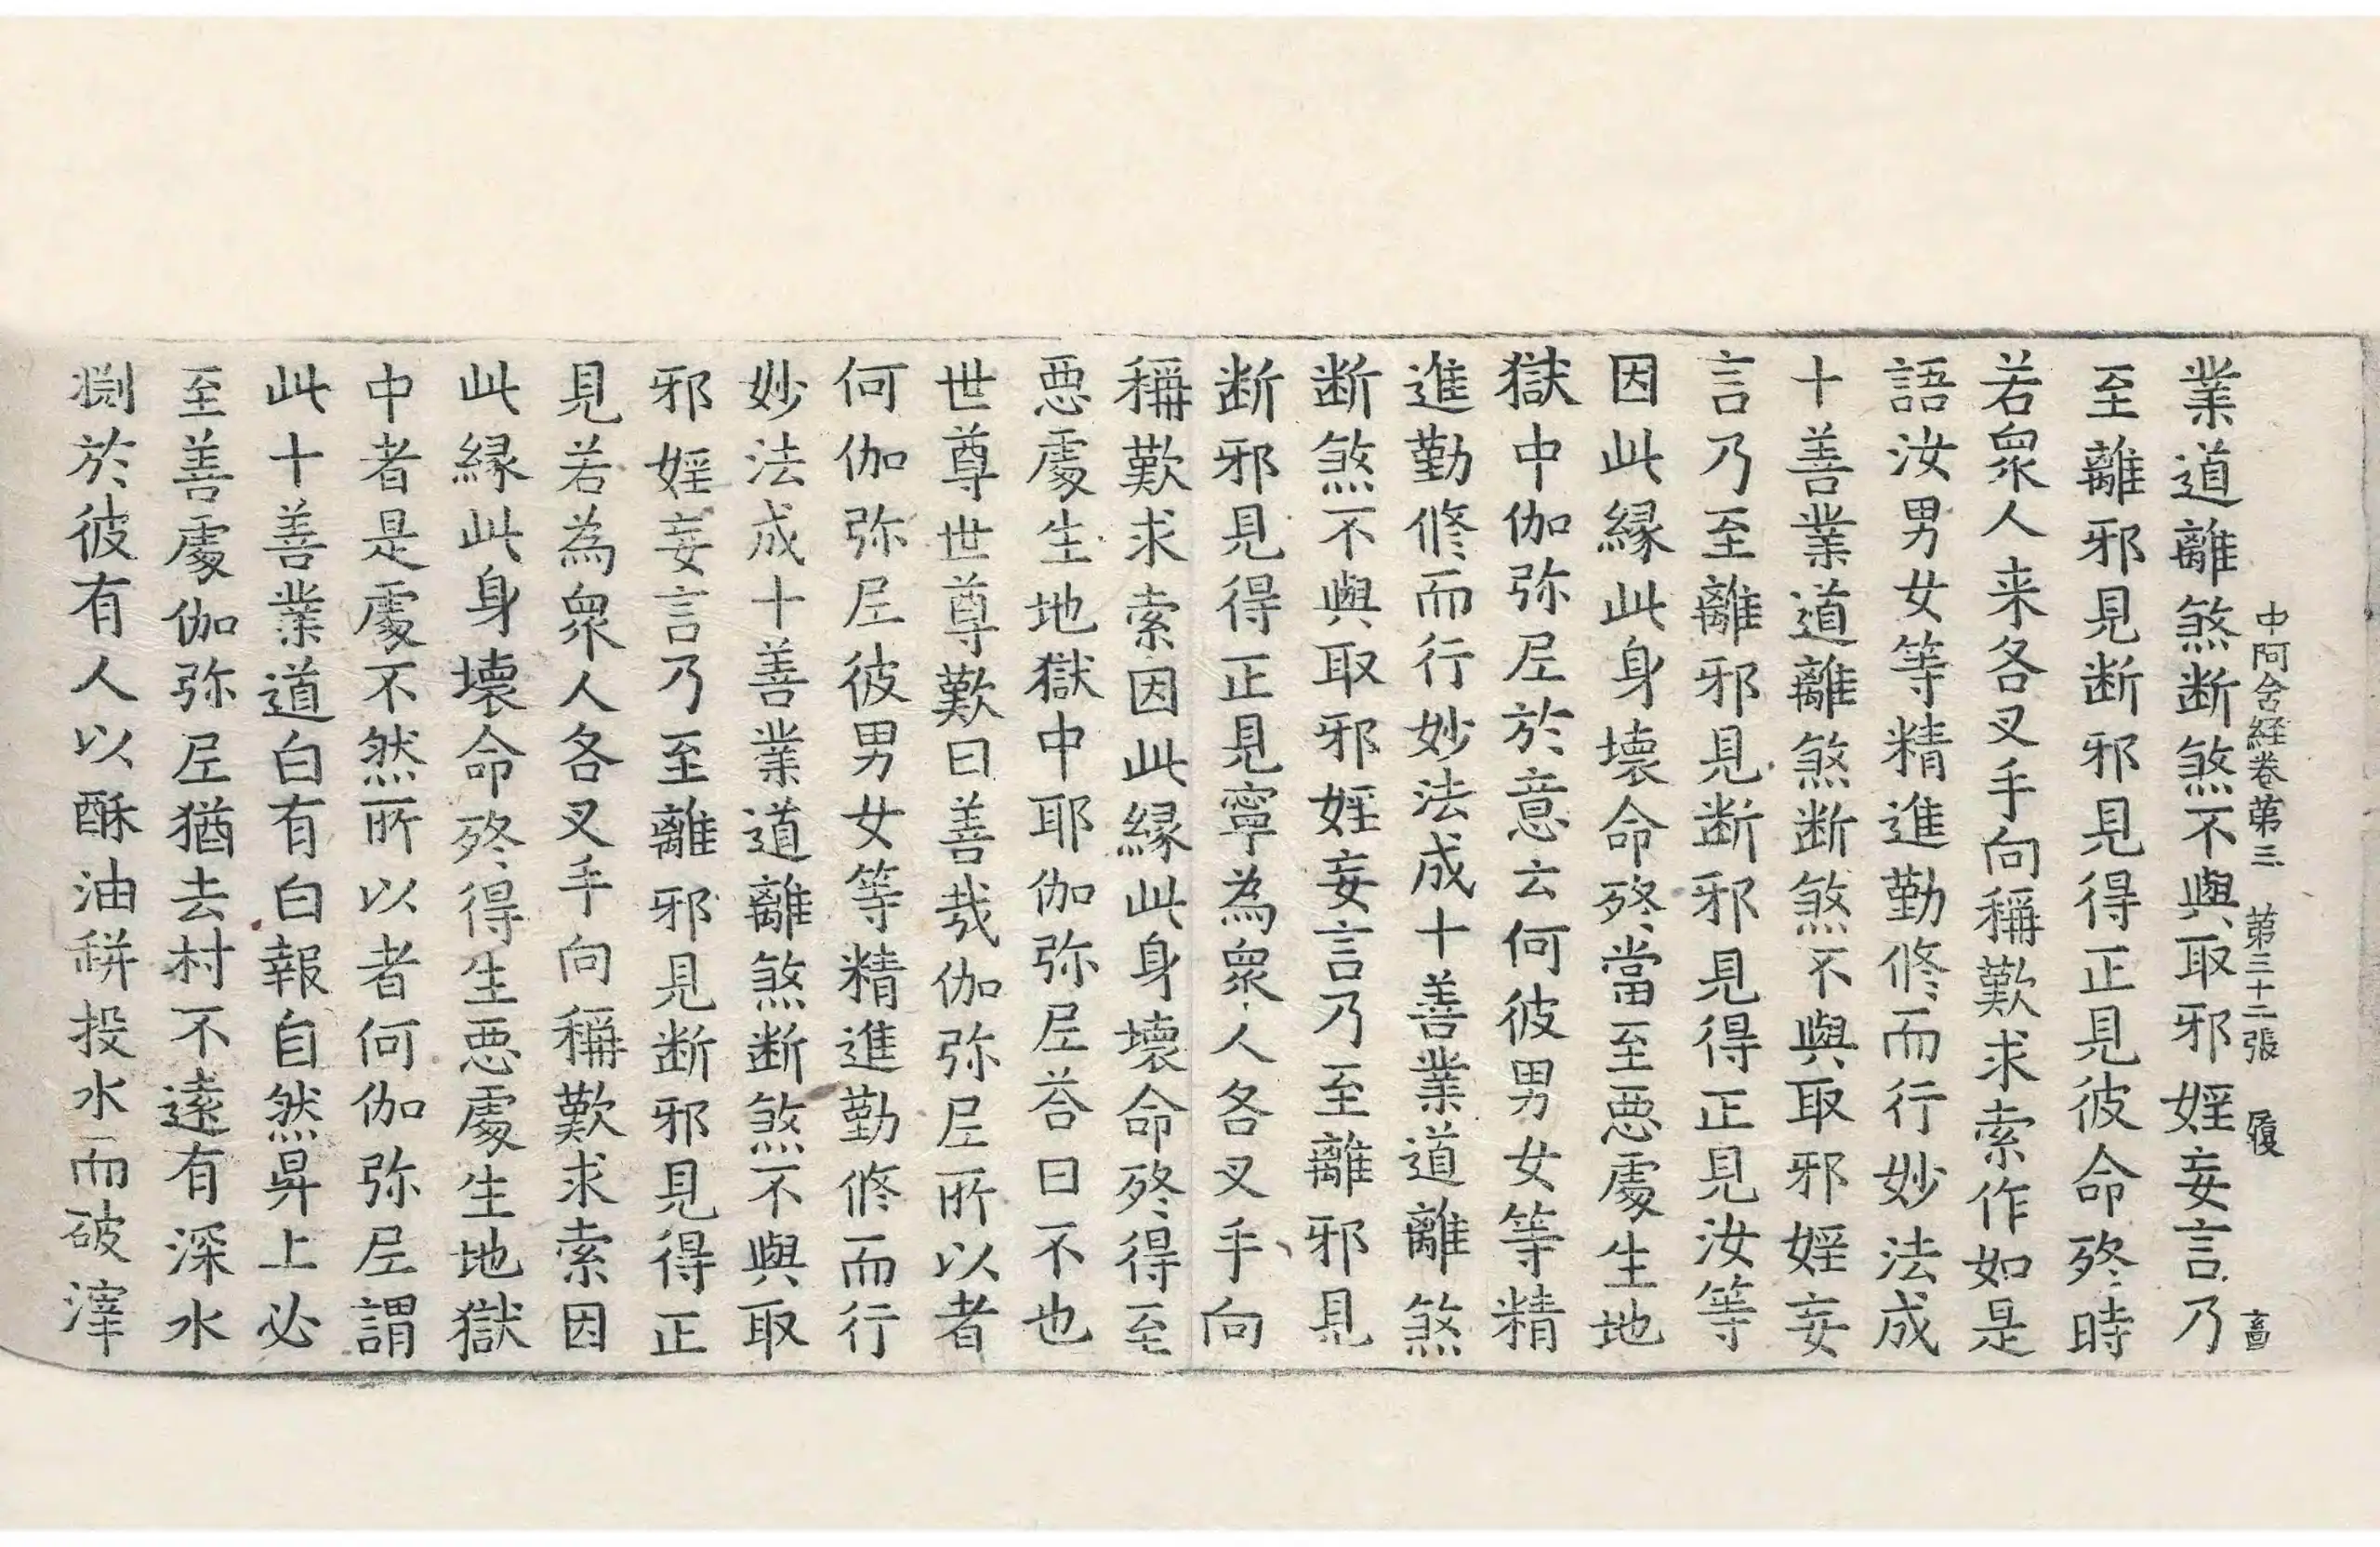 中阿含経卷苐三 苐三十二張 履 啚
業道離煞断煞不與取邪婬妄言乃
至離邪見断邪見得正見彼命終時
若衆人来各叉手向稱歎求索作如是
語汝男女等精進勤修而行妙法成
十善業道離煞断煞不與取邪婬妄
言乃至離邪見断邪見得正見汝等
因此縁此身壞命終當至惡處生地
獄中伽弥尼於意云何彼男女等精
進勤修而行妙法成十善業道離煞
断煞不與取邪婬妄言乃至離邪見
断邪見得正見寧為衆人各叉手向
稱歎求索因此縁此身壞命終得至
惡處生地獄中耶伽弥尼荅曰不也
世尊世尊歎曰善㢤伽弥尼所以者
何伽弥尼彼男女等精進勤修而行
妙法成十善業道離煞断煞不與取
邪婬妄言乃至離邪見断邪見得正
見若為衆人各叉手向稱歎求索因
此縁此身壞命終得生惡處生地獄
中者是處不然所以者何伽弥尼謂
此十善業道白有白報自然昇上必
至善處伽弥尼猶去村不遠有深水
渕於彼有人以酥油瓶投水而破滓